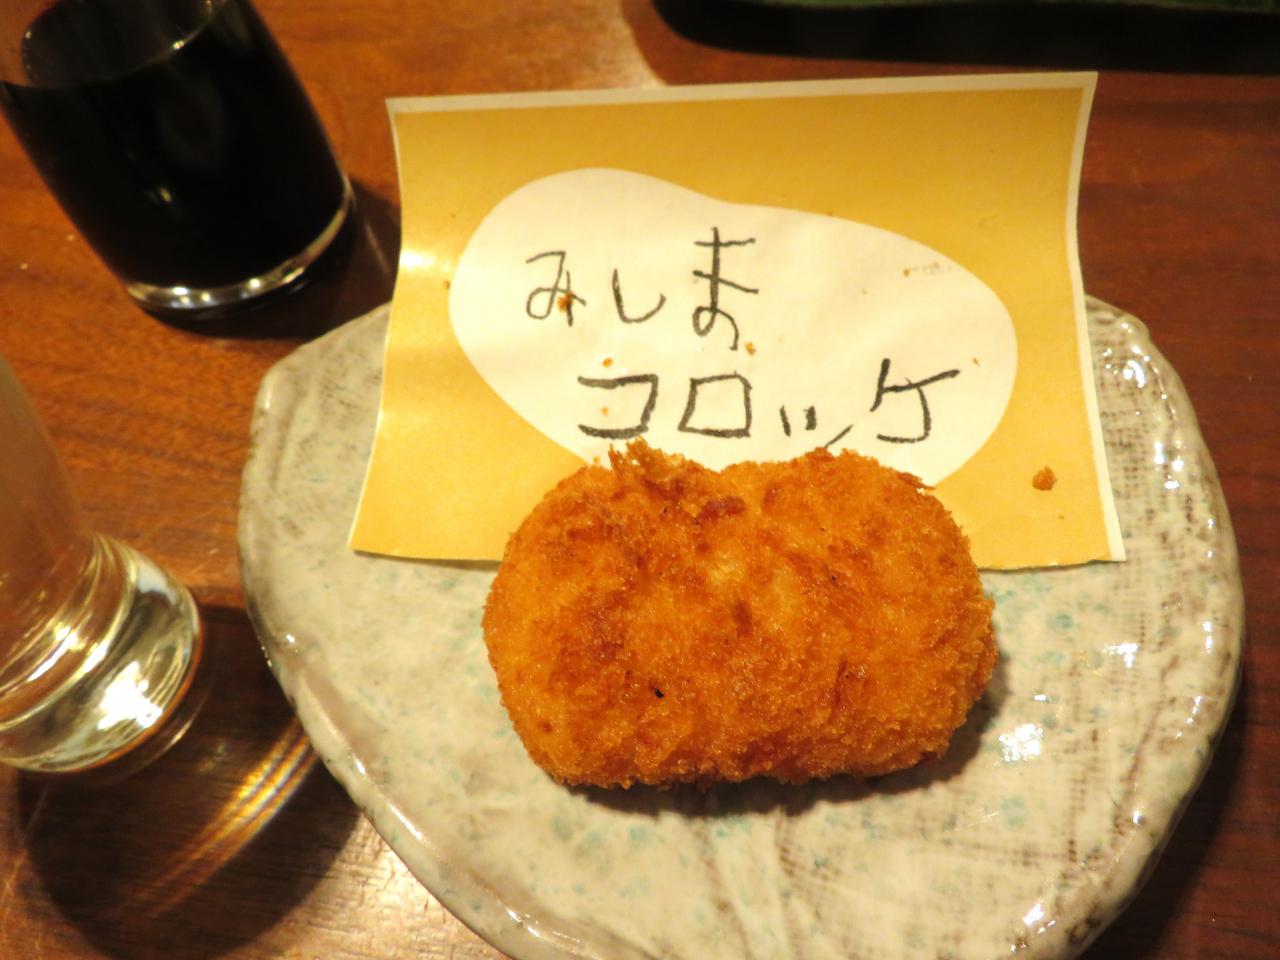 みしま
コロッケ